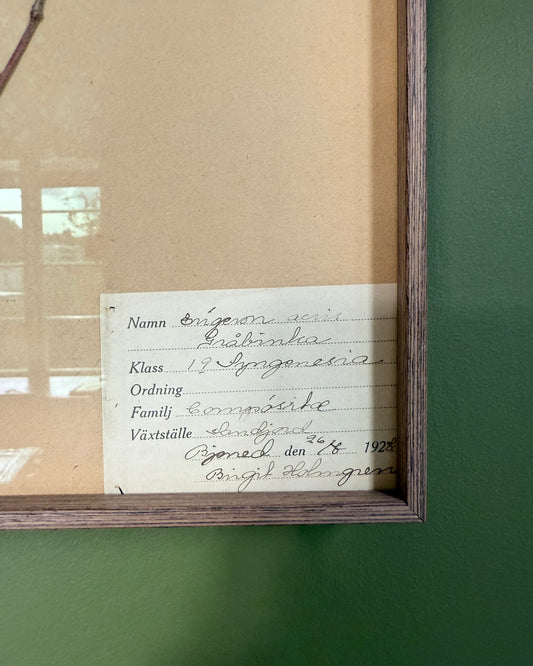 Namn Erigeron acris
Gråbinka
Klass 19 Syngenesia
Ordning
Familj Compositæ
Växtställe Sandjord
den 26/8 192
Birgit Holmgren